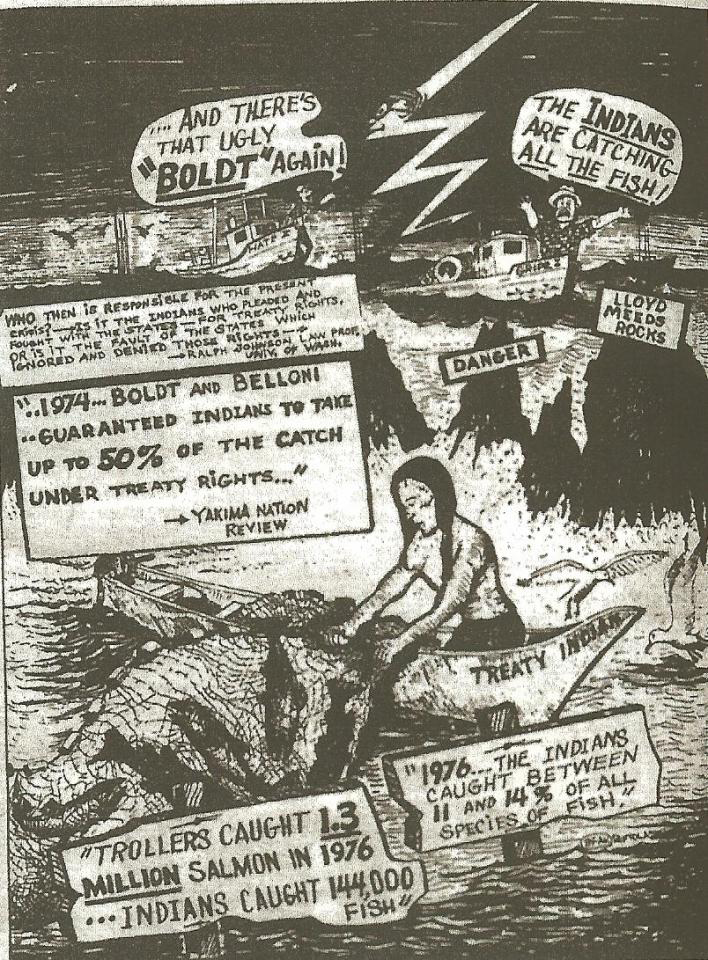 ".... AND THERE'S
THAT UGLY
"BOLDT" AGAIN!
THE INDIANS
ARE CATCHING
ALL THE FISH!
WHO THEN IS RESPONSIBLE FOR THE PRESENT
CRISIS? — IS IT THE INDIANS WHO PLEADED AND
FOUGHT WITH THE STATES — FOR TREATY RIGHTS,
OR IS IT THE FAULT OF THE STATES WHICH
IGNORED AND DENIED THOSE RIGHTS —
RALPH JOHNSON LAW PROF.
UNIV. OF WASH.
LLOYD
MEEDS
ROCKS
DANGER
"..1974... BOLDT AND BELLONI
..GUARANTEED INDIANS TO TAKE
UP TO 50% OF THE CATCH
UNDER TREATY RIGHTS..."
→ YAKIMA NATION
REVIEW
TREATY INDIAN
"1976... THE INDIANS
CAUGHT BETWEEN
11 AND 14% OF ALL
SPECIES OF FISH."
"TROLLERS CAUGHT 1.3
MILLION SALMON IN 1976
... INDIANS CAUGHT 144,000
FISH"